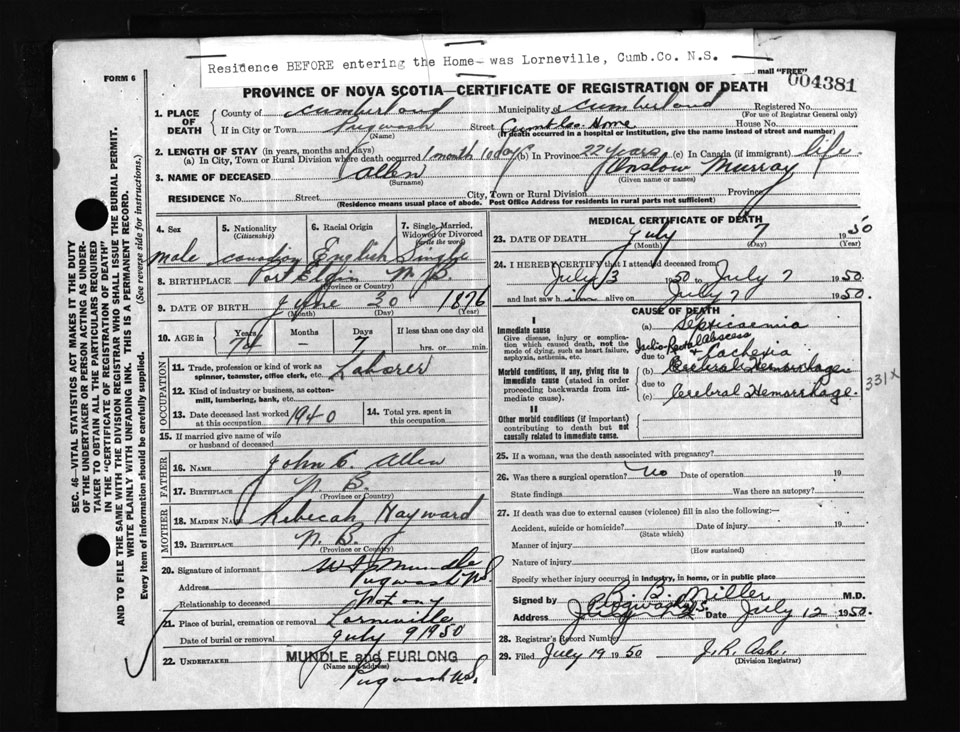 Residence BEFORE entering the Home was Lorneville, Cumb.Co. N.S.
FORM 6
mail "FREE"
004381
PROVINCE OF NOVA SCOTIA—CERTIFICATE OF REGISTRATION OF DEATH
1. PLACE OF DEATH
County of Cumberland Municipality of Cumberland Registered No.
(For use of Registrar General only)
If in City or Town Pugwash Street Cumb. Co. Home House No.
(Name) (If death occurred in a hospital or institution, give the name instead of street and number)
2. LENGTH OF STAY (in years, months and days)
(a) In City, Town or Rural Division where death occurred 1 month 10 days (b) In Province 22 years (c) In Canada (if immigrant) life
3. NAME OF DECEASED Allen Onslow Murray
(Surname) (Given name or names)
RESIDENCE No. Street City, Town or Rural Division Province
(Residence means usual place of abode. Post Office Address for residents in rural parts not sufficient)
4. Sex 5. Nationality (Citizenship) 6. Racial Origin 7. Single, Married, Widowed or Divorced (Write the word)
male Canadian English Single
8. BIRTHPLACE Port Elgin N.B.
(Province or Country)
9. DATE OF BIRTH June 30 1876
(Month) (Day) (Year)
10. AGE in Years Months Days If less than one day old
74 – 7 hrs. or min.
OCCUPATION
11. Trade, profession or kind of work as spinner, teamster, office clerk, etc. Laborer
12. Kind of industry or business, as cotton-mill, lumbering, bank, etc.
13. Date deceased last worked at this occupation 1940 14. Total yrs. spent in this occupation
15. If married give name of wife or husband of deceased
FATHER
16. NAME John C. Allen
17. BIRTHPLACE N.B.
(Province or Country)
MOTHER
18. MAIDEN NAME Rebecah Hayward
19. BIRTHPLACE N.B.
(Province or Country)
20. Signature of informant Mundle
Address Pugwash N.S.
Relationship to deceased Not any
21. Place of burial, cremation or removal Lorneville
Date of burial or removal July 9 1950
22. UNDERTAKER MUNDLE and FURLONG
(Name and address)
Pugwash N.S.
MEDICAL CERTIFICATE OF DEATH
23. DATE OF DEATH July 7 1950
(Month) (Day) (Year)
24. I HEREBY CERTIFY that I attended deceased from
July 3 1950 to July 7 1950.
and last saw him alive on July 7 1950.
CAUSE OF DEATH
I
Immediate cause
Give disease, injury or complication which caused death, not the mode of dying, such as heart failure, asphyxia, asthenia, etc.
(a) Septicaemia
due to Ischio Rectal Abscess
+ Cachexia
Morbid conditions, if any, giving rise to immediate cause (stated in order proceeding backwards from immediate cause).
(b) Cerebral Hemorrhage
due to
(c) Cerebral Hemorrhage.
331x
II
Other morbid conditions (if important) contributing to death but not causally related to immediate cause.
25. If a woman, was the death associated with pregnancy?
26. Was there a surgical operation? No Date of operation 19
State findings Was there an autopsy?
27. If death was due to external causes (violence) fill in also the following:—
Accident, suicide or homicide? Date of injury 19
(State which)
Manner of injury
(How sustained)
Nature of injury
Specify whether injury occurred in industry, in home, or in public place
Signed by B. D. Miller M.D.
Address Pugwash N.S. Date July 12 1950.
28. Registrar's Record Number
29. Filed July 19 1950 J. R. Ash.
(Division Registrar)
SEC. 46—VITAL STATISTICS ACT MAKES IT THE DUTY
OF THE UNDERTAKER OR PERSON ACTING AS UNDER-
TAKER TO OBTAIN ALL THE PARTICULARS REQUIRED
IN THE "CERTIFICATE OF REGISTRATION OF DEATH"
AND TO FILE THE SAME WITH THE DIVISION REGISTRAR WHO SHALL ISSUE THE BURIAL PERMIT.
WRITE PLAINLY WITH UNFADING INK. THIS IS A PERMANENT RECORD.
Every item of information should be carefully supplied. (See reverse side for instructions.)